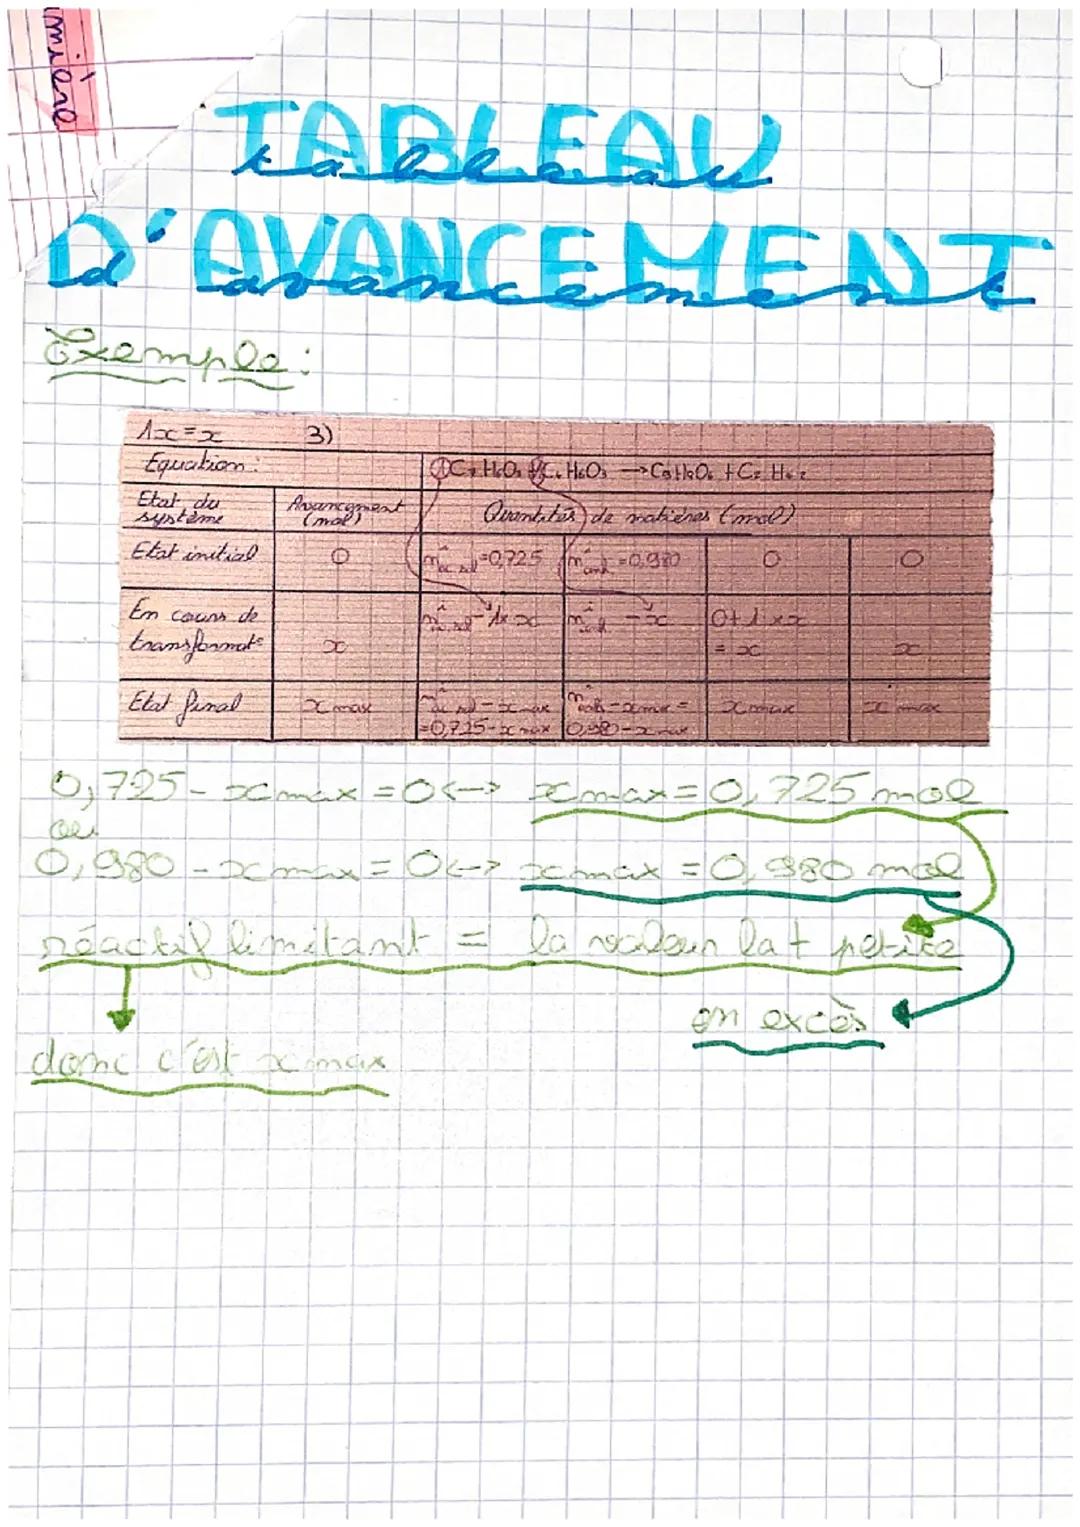 umière
TABLEAU
tableau
D'AVANCEMENT
d'avancement
Exemple :
1x = x 3)
Equation : 1 C7H6O3 + 1 C4H6O3 → C9H8O4 + C2H4O2
Etat du système Avancement (mol) Quantités de matières (mol)
Etat initial 0 n^i ac sal = 0,725 n^i anh = 0,980 0 0
En cours de 
transformat° x n^i ac sal - 1 × x n^i anh - x 0 + 1 × x = x x
Etat final x max n^i ac sal - x max = 0,725 - x max n^i anh - x max = 0,980 - x max x max x max
0,725 - x max = 0 <-> x max = 0,725 mol
ou
0,980 - x max = 0 <-> x max = 0,980 mol
réactif limitant = la valeur la + petite
en excès
donc c'est x max